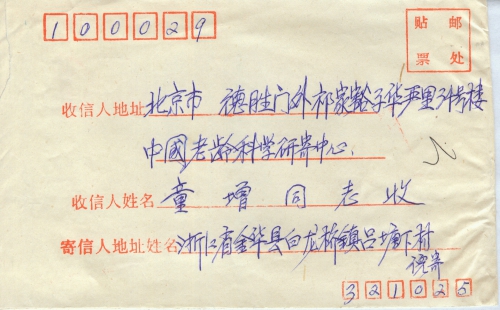 100029
贴 邮
票 处
收信人地址 北京市 德胜门外祁家豁子华严里3号楼
中國老龄科学研究中心.
收信人姓名 童 增 同 志 收
寄信人地址姓名 浙江省金华县白龙桥镇吕塘下村
寄
321025